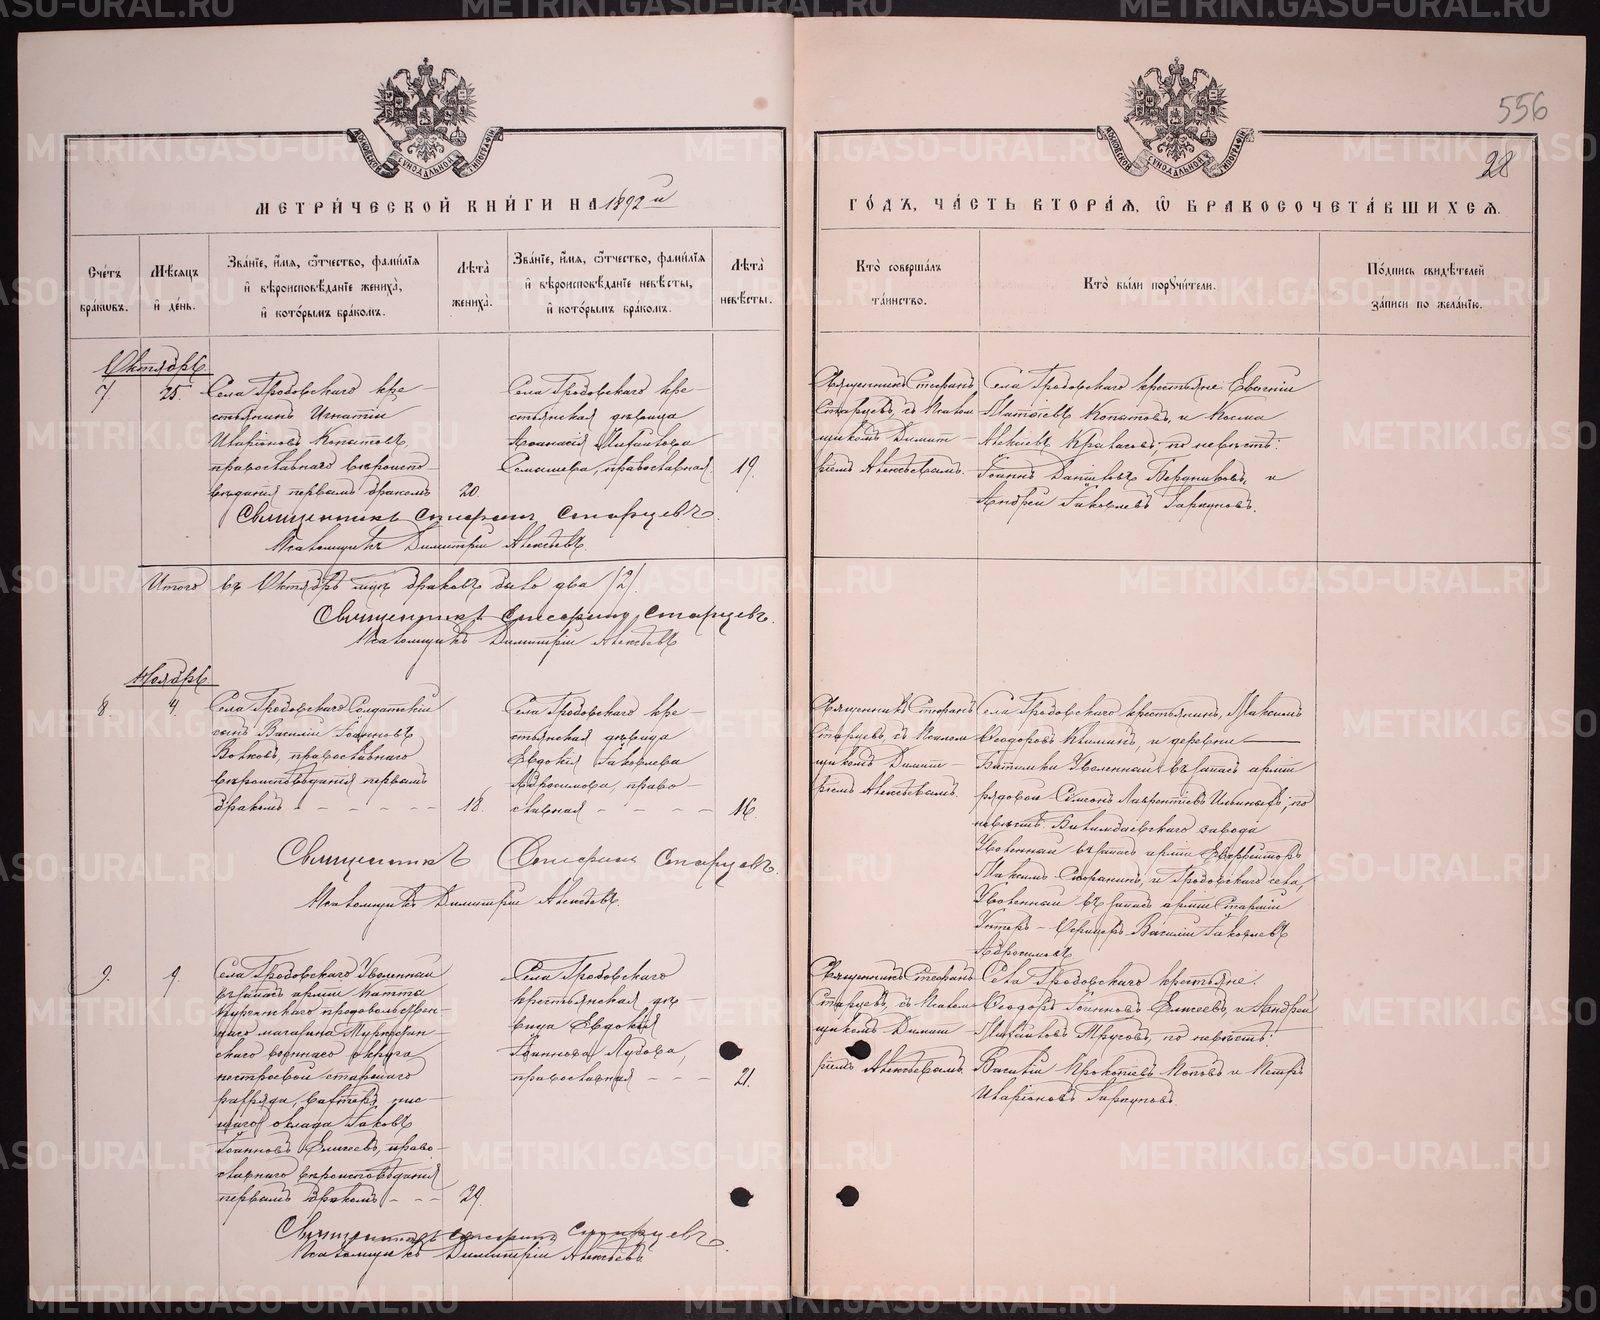 556
28
МЕТРИЧЕСКОЙ КНИГИ НА 1892 й
ГОДЪ, ЧАСТЬ ВТОРАЯ, Ѡ БРАКОСОЧЕТАВШИХСЯ.
Счетъ браковъ.
Мѣсяцъ и день.
Званіе, имя, отчество, фамилія
и вѣроисповѣданіе жениха,
и которымъ бракомъ.
Лѣта жениха.
Званіе, имя, отчество, фамилія
и вѣроисповѣданіе невѣсты,
и которымъ бракомъ.
Лѣта невѣсты.
Кто совершалъ таинство.
Кто были поручители.
Подпись свидѣтелей
записи по желанію.
Октябрь
7
25
Села Гробовскаго кре-
стьянинъ Игнатій
Иларіоновъ Копытовъ,
православнаго вѣроиспо-
вѣданія первымъ бракомъ
20.
Села Гробовскаго кре-
стьянская дѣвица
Аѳанасія
православная.
19.
Священникъ Стефанъ
Старцевъ, съ Псалом
щикомъ Димит-
ріемъ Алексѣевымъ.
Села Гробовскаго крестьяне Евгеній
Копытовъ, и Косма
по невѣстѣ:
Іоаннъ Даниловъ Бердниковъ, и
Андрей Іаковлевъ
Священникъ Стефанъ Старцевъ.
Псаломщикъ Димитрій Алексѣевъ.
Итого въ Октябрѣ мцѣ браковъ было два /2/.
Священникъ Стефанъ Старцевъ.
Псаломщикъ Димитрій Алексѣевъ
Ноябрь
8.
4.
Села Гробовскаго Солдатскій
сынъ Василій Іоанновъ
православнаго
вѣроисповѣданія первымъ
бракомъ
18.
Села Гробовскаго кре-
стьянская дѣвица
Евдокія Іаковлева
Абросимова, право-
славная
16.
Священникъ Стефанъ
Старцевъ, съ Псалом
щикомъ Димит-
ріемъ Алексѣевымъ.
Села Гробовскаго крестьянинъ, Максимъ
Ѳеодоровъ и деревни
Уволенный въ запасъ арміи
рядовой Симеонъ Лаврентіевъ по
невѣстѣ: Билимбаевскаго завода
Уволенный въ запасъ арміи Ефрейторъ
Максимъ и Гробовскаго села,
Уволенный въ запасъ арміи Старшій
Унтеръ-Офицеръ Василій Іаковлевъ
Абросимовъ
Священникъ Стефанъ Старцевъ.
Псаломщикъ Димитрій Алексѣевъ.
9.
9.
Села Гробовскаго Уволенный
въ запасъ арміи
продовольствен-
наго магазина Туркестан-
скаго военнаго округа
нестроевой старшаго
разряда, пис-
щаго оклада Іаковъ
Іоанновъ Елисеевъ, право-
славнаго вѣроисповѣданія
первымъ бракомъ
29.
Села Гробовскаго
крестьянская дѣ-
вица Евдокія
Іоаннова
православная
21.
Священникъ Стефанъ
Старцевъ, съ Псалом
щикомъ Димит
ріемъ Алексѣевымъ.
Села Гробовскаго крестьяне:
Ѳеодоръ Іоанновъ Елисеевъ, и Андрей
по невѣстѣ:
Василій Прокопіевъ Поповъ и Петръ
Иларіоновъ
Священникъ Стефанъ Старцевъ.
Псаломщикъ Димитрій Алексѣевъ.
METRIKI.GASO-URAL.RU